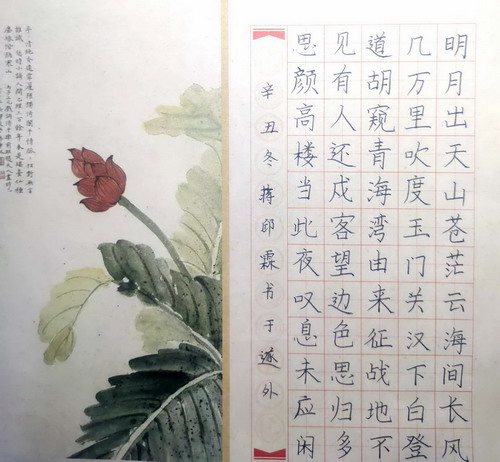 明月出天山苍茫云海间长风
几万里吹度玉门关汉下白登
道胡窥青海湾由来征战地不
见有人还戍客望边色思归多
思颜高楼当此夜叹息未应闲
辛丑冬蒋邱霖书于遂外